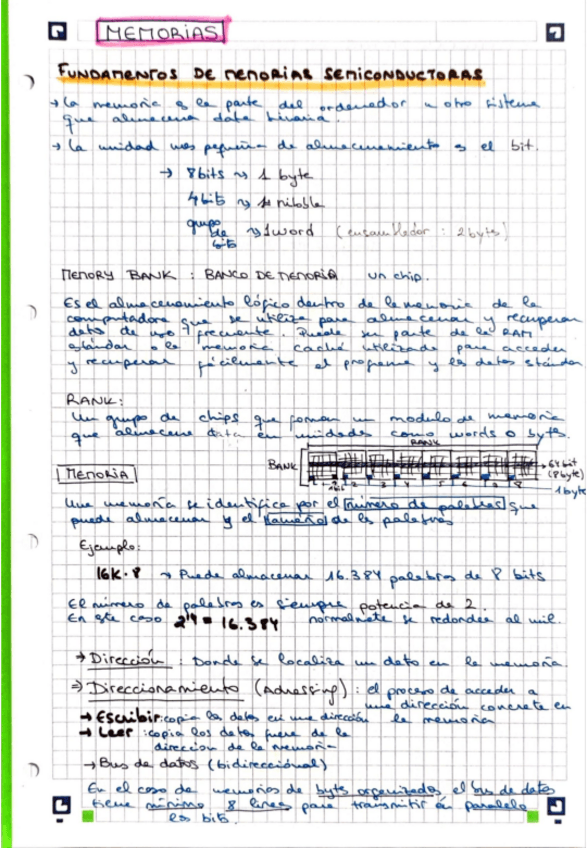 MEMORIAS
FUNDAMENTOS DE MEMORIAS SEMICONDUCTORAS
→ La memoria es la parte del ordenador u otro sistema
que almacena data binaria.
→ La unidad mas pequeña de almacenamiento es el bit.
→ 8bits ~> 1 byte
4bits ~> 1 nibble
grupo de bits ~> 1 word (ensamblador: 2bytes)
MEMORY BANK : BANCO DE MEMORIA un chip.
Es el almacenamiento lógico dentro de la memoria de la
computadora que se utiliza para almacenar y recuperar
dato de uso frecuente. Puede ser parte de la RAM
stándar o la memoria caché utilizada para acceder
y recuperar fácilmente el programa y los datos stándar
RANK:
Un grupo de chips que forman un modulo de memoria
que almacena data en unidades como words o byts.
RANK
BANK
1 2 3 4 5 6 7 8
1bit
64 bit
(8byte)
1 byte
MEMORIA
Una memoria se identifica por el número de palabras que
puede almacenar y el tamaño de las palabras
Ejemplo:
16K·8 → Puede almacenar 16.384 palabras de 8 bits
El número de palabras es siempre potencia de 2.
En este caso 2^14 = 16.384 normalmete se redondea al mil.
→ Dirección : Donde se localiza un dato en la memoria.
⇒ Direccionamiento (Adressing) : el proceso de acceder a
una dirección concreta en
la memoria
→ Escribir: copia los datos en una dirección
→ Leer : copia los datos fuera de la
direccion de la memoria
→ Bus de datos (bidireccional)
En el caso de memorias de byts organizados el bus de datos
tiene mínimo 8 lineas para transmitir en paralelo
los bits.